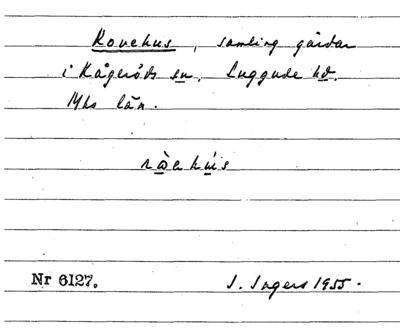 Kovehus, samling gårdar
i Kågeröds sn. Luggude hd.
Mhs län.
Nr 6127.
I. Ingers 1955.